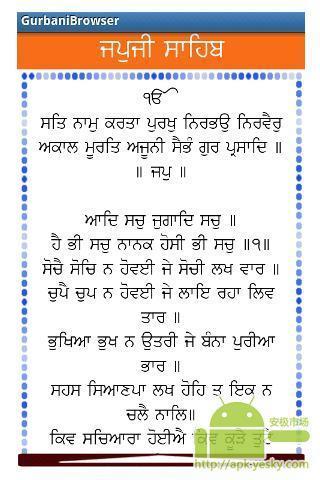 GurbaniBrowser
ਜਪੁਜੀ ਸਾਹਿਬ
ੴ
ਸਤਿ ਨਾਮੁ ਕਰਤਾ ਪੁਰਖੁ ਨਿਰਭਉ ਨਿਰਵੈਰੁ
ਅਕਾਲ ਮੂਰਤਿ ਅਜੂਨੀ ਸੈਭੰ ਗੁਰ ਪ੍ਰਸਾਦਿ ॥
॥ ਜਪੁ ॥
ਆਦਿ ਸਚੁ ਜੁਗਾਦਿ ਸਚੁ ॥
ਹੈ ਭੀ ਸਚੁ ਨਾਨਕ ਹੋਸੀ ਭੀ ਸਚੁ ॥੧॥
ਸੋਚੈ ਸੋਚਿ ਨ ਹੋਵਈ ਜੇ ਸੋਚੀ ਲਖ ਵਾਰ ॥
ਚੁਪੈ ਚੁਪ ਨ ਹੋਵਈ ਜੇ ਲਾਇ ਰਹਾ ਲਿਵ
ਤਾਰ ॥
ਭੁਖਿਆ ਭੁਖ ਨ ਉਤਰੀ ਜੇ ਬੰਨਾ ਪੁਰੀਆ
ਭਾਰ ॥
ਸਹਸ ਸਿਆਣਪਾ ਲਖ ਹੋਹਿ ਤ ਇਕ ਨ
ਚਲੈ ਨਾਲਿ॥
ਕਿਵ ਸਚਿਆਰਾ ਹੋਈਐ ਕਿਵ ਕੂੜੈ ਤੁਟੈ
安极市场
http://apk.yesky.com